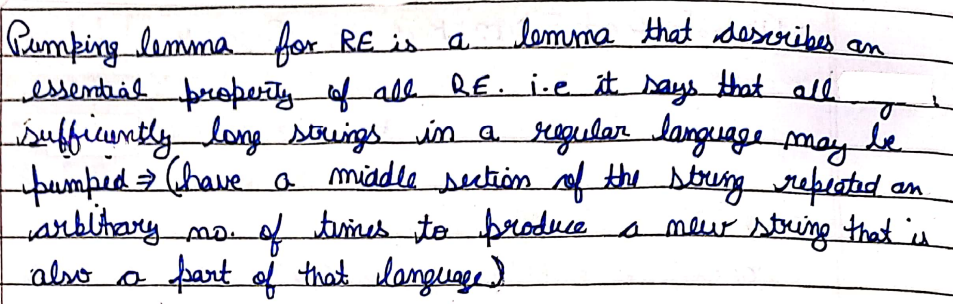 Pumping lemma for RE is a lemma that describes an
essential property of all RE. i.e it says that all
sufficiently long strings in a regular language may be
pumped ⇒ (have a middle section of the string repeated an
arbitrary no. of times to produce a new string that is
also a part of that language)